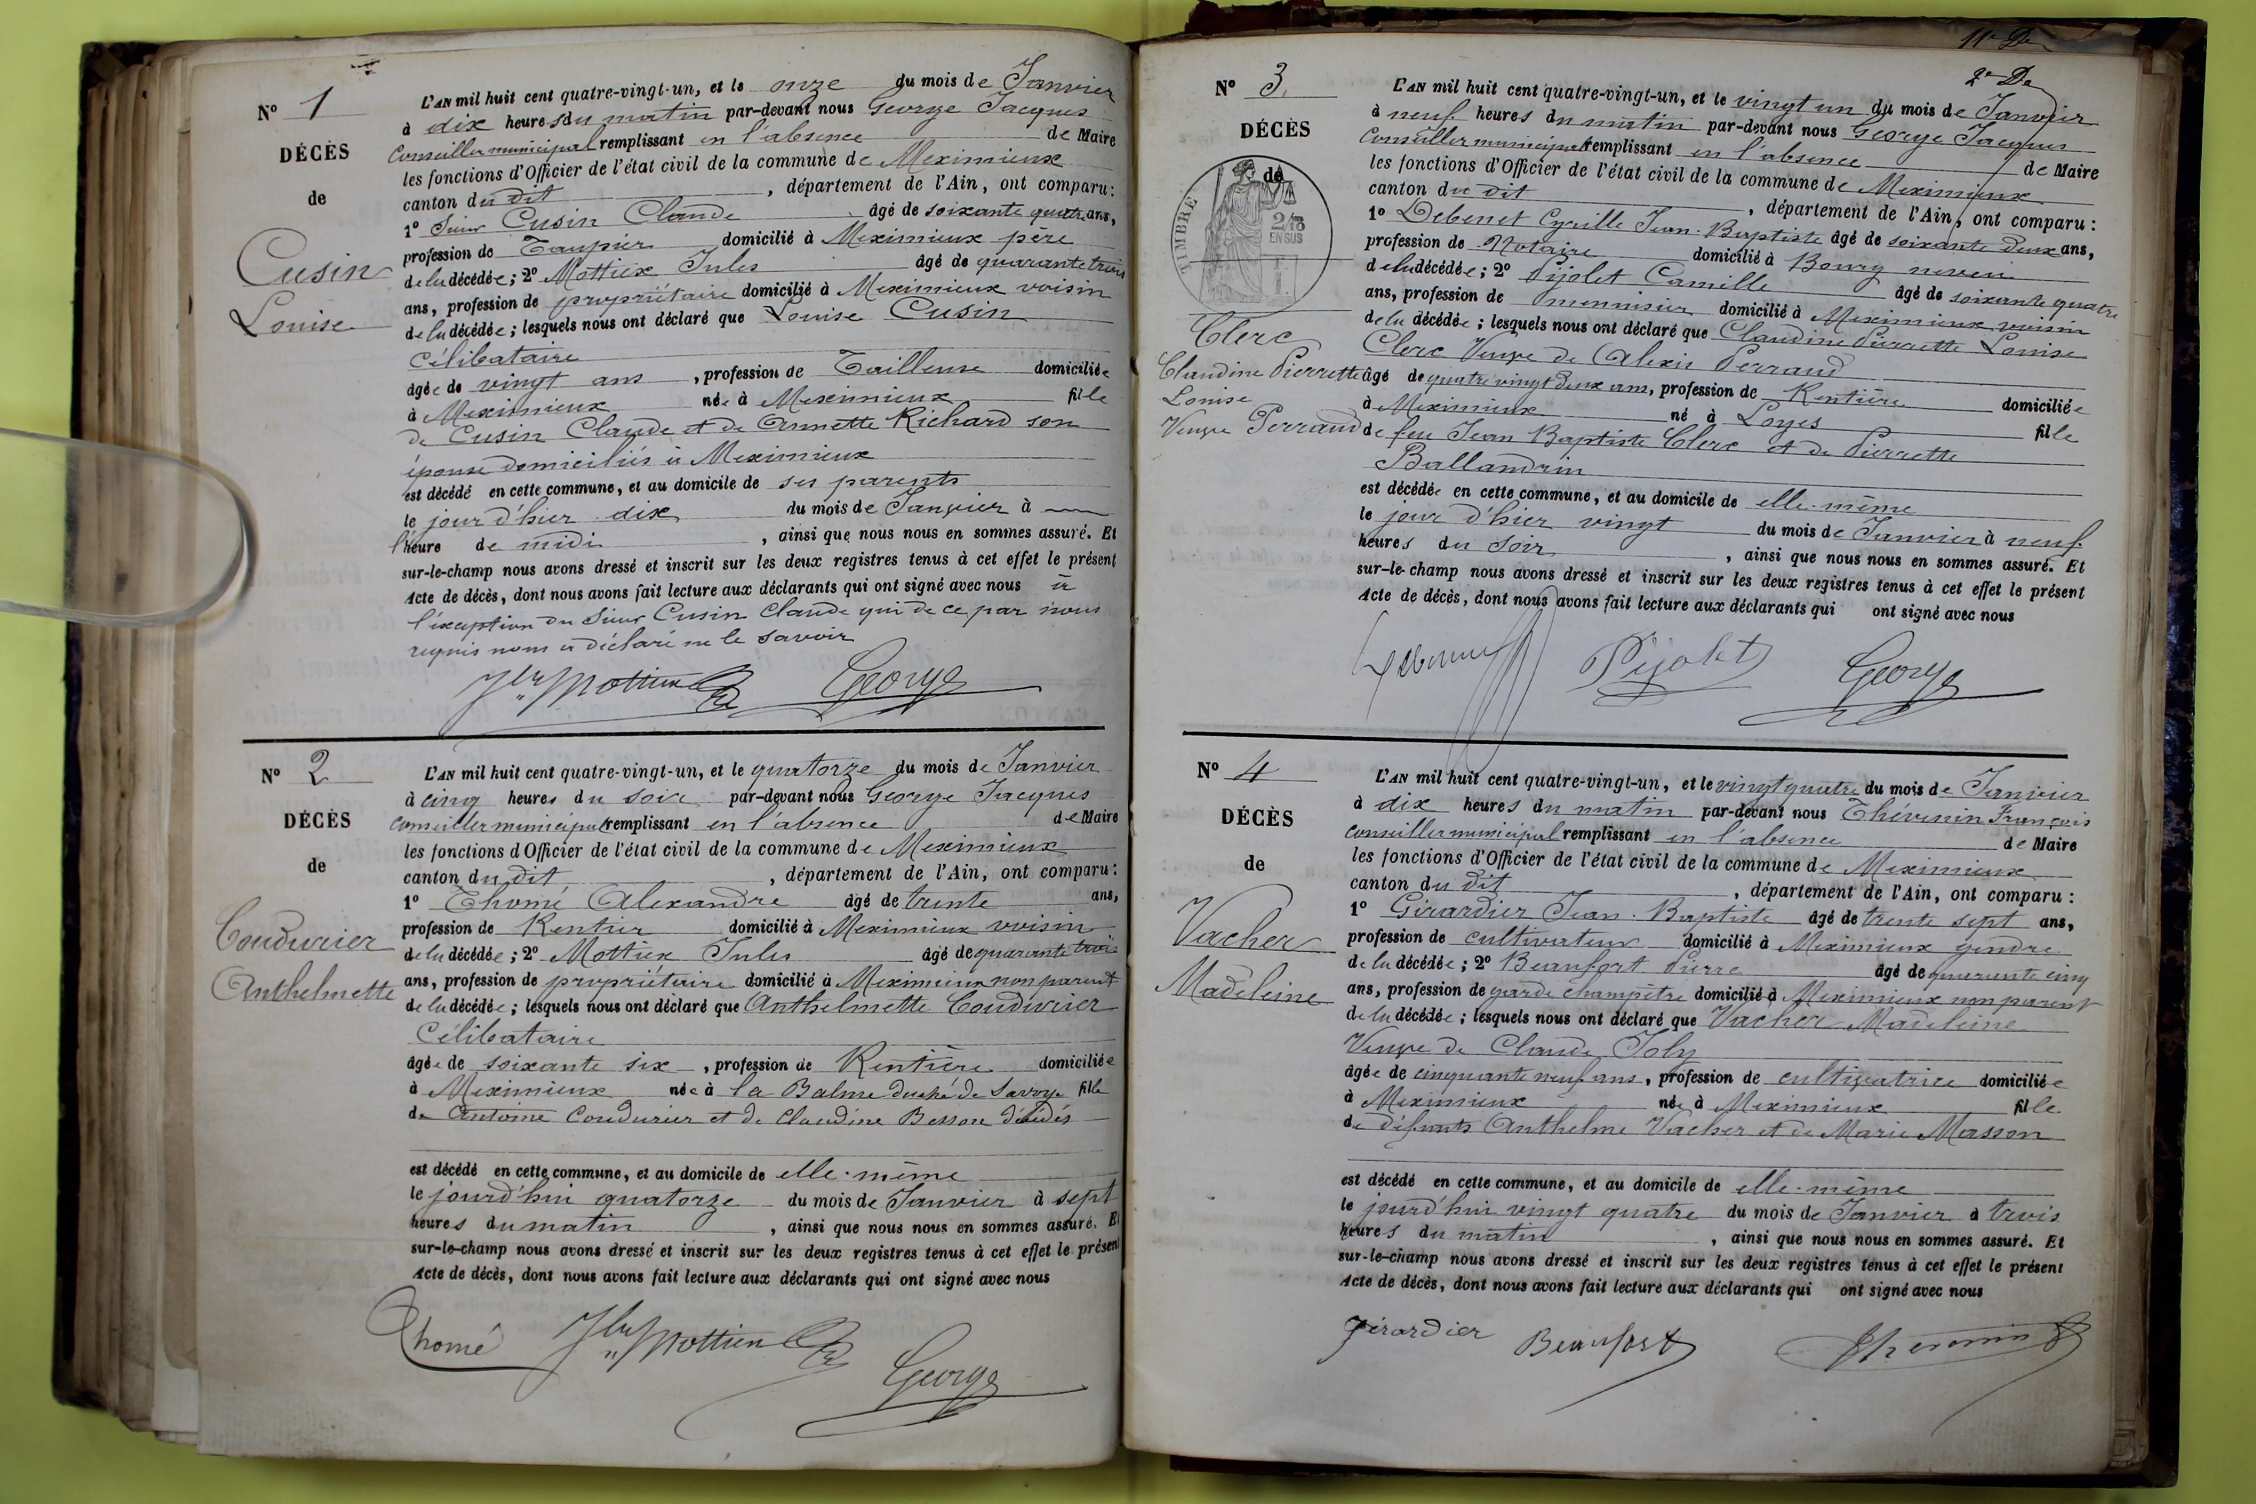 N° 1
DÉCÈS
de
Cusin
Louise
L'AN mil huit cent quatre-vingt-un, et le onze du mois de Janvier
à dix heures du matin par-devant nous George Jacques
Conseiller municipal remplissant en l'absence de Maire
les fonctions d'Officier de l'état civil de la commune de Meximieux
canton du dit , département de l'Ain, ont comparu:
1° Sieur Cusin Claude âgé de soixante quatre ans,
profession de Taupier domicilié à Meximieux père
de la décédée; 2° Mottiex Jules âgé de quarante trois
ans, profession de propriétaire domicilié à Meximieux voisin
de la décédée; lesquels nous ont déclaré que Louise Cusin
Célibataire
âgée de vingt ans , profession de Tailleuse domiciliée
à Meximieux née à Meximieux fille
de Cusin Claude et de Annette Richard son
épouse domiciliés à Meximieux
est décédé en cette commune, et au domicile de ses parents
le jour d'hier dix du mois de Janvier à
l'heure de midi , ainsi que nous nous en sommes assuré. Et
sur-le-champ nous avons dressé et inscrit sur les deux registres tenus à cet effet le présent
Acte de décès, dont nous avons fait lecture aux déclarants qui ont signé avec nous à
l'exception du Sieur Cusin Claude qui de ce par nous
requis nous a déclaré ne le savoir
Jles Mottiex George
N° 2
DÉCÈS
de
Coudurier
Anthelmette
L'AN mil huit cent quatre-vingt-un, et le quatorze du mois de Janvier
à cinq heures du soir par-devant nous George Jacques
Conseiller municipal remplissant en l'absence de Maire
les fonctions d'Officier de l'état civil de la commune de Meximieux
canton du dit , département de l'Ain, ont comparu:
1° Thomé Alexandre âgé de trente ans,
profession de Rentier domicilié à Meximieux voisin
de la décédée; 2° Mottiex Jules âgé de quarante trois
ans, profession de propriétaire domicilié à Meximieux non parent
de la décédée; lesquels nous ont déclaré que Anthelmette Coudurier
Célibataire
âgée de soixante six , profession de Rentière domiciliée
à Meximieux née à la Balme duché de Savoye fille
de Antoine Coudurier et de Claudine Besson décédés
est décédé en cette commune, et au domicile de elle-même
le jourd'hui quatorze du mois de Janvier à sept
heures du matin , ainsi que nous nous en sommes assuré. Et
sur-le-champ nous avons dressé et inscrit sur les deux registres tenus à cet effet le présent
Acte de décès, dont nous avons fait lecture aux déclarants qui ont signé avec nous
Thomé Jles Mottiex
George
11e De
2e De
N° 3
DÉCÈS
de
TIMBRE
2/10
EN SUS
Clerc
Claudine Pierrette
Louise
Veuve Perraud
L'AN mil huit cent quatre-vingt-un, et le vingt un du mois de Janvier
à neuf heures du matin par-devant nous George Jacques
Conseiller municipal remplissant en l'absence de Maire
les fonctions d'Officier de l'état civil de la commune de Meximieux
canton du dit , département de l'Ain, ont comparu:
1° Debenet Cyrille Jean-Baptiste âgé de soixante deux ans,
profession de Notaire domicilié à Bourg neveu
de la décédée; 2° Pijolet Camille âgé de soixante quatre
ans, profession de menuisier domicilié à Meximieux voisin
de la décédée; lesquels nous ont déclaré que Claudine Pierrette Louise
Clerc Veuve de Alexis Perraud
âgé de quatre vingt deux ans, profession de Rentière domiciliée
à Meximieux né à Loyes fille
de feu Jean Baptiste Clerc et de Pierrette
Ballandrin
est décédée en cette commune, et au domicile de elle-même
le jour d'hier vingt du mois de Janvier à neuf
heures du soir , ainsi que nous nous en sommes assuré. Et
sur-le-champ nous avons dressé et inscrit sur les deux registres tenus à cet effet le présent
Acte de décès, dont nous avons fait lecture aux déclarants qui ont signé avec nous
Pijolet George
N° 4
DÉCÈS
de
Vacher
Madeleine
L'AN mil huit cent quatre-vingt-un, et le vingt quatre du mois de Janvier
à dix heures du matin par-devant nous Thévenin François
Conseiller municipal remplissant en l'absence de Maire
les fonctions d'Officier de l'état civil de la commune de Meximieux
canton du dit , département de l'Ain, ont comparu:
1° Girardier Jean-Baptiste âgé de trente sept ans,
profession de cultivateur domicilié à Meximieux gendre
de la décédée; 2° Beaufort Pierre âgé de quarante cinq
ans, profession de garde champêtre domicilié à Meximieux non parent
de la décédée; lesquels nous ont déclaré que Vacher Madeleine
Veuve de Claude Joly
âgée de cinquante neuf ans, profession de cultivatrice domiciliée
à Meximieux née à Meximieux fille
de défunts Anthelme Vacher et de Marie Masson
est décédé en cette commune, et au domicile de elle-même
le jourd'hui vingt quatre du mois de Janvier à trois
heures du matin , ainsi que nous nous en sommes assuré. Et
sur-le-champ nous avons dressé et inscrit sur les deux registres tenus à cet effet le présent
Acte de décès, dont nous avons fait lecture aux déclarants qui ont signé avec nous
Girardier Beaufort Thevenin